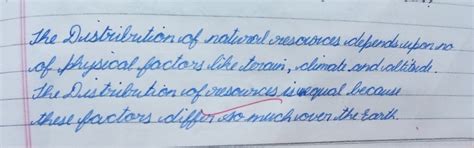 The Distribution of natural resources depends upon no
of physical factors like terain, climate and altitude.
The Distribution of resources is unequal because
these factors differ so much over the Earth.